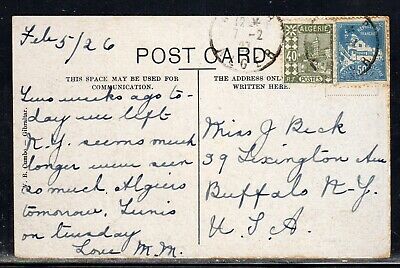 Feb 5/26
POST CARD
THIS SPACE MAY BE USED FOR COMMUNICATION.
THE ADDRESS ONLY
WRITTEN HERE.
ALGERIE
40
POSTES
Two weeks ago to-
day we left
N.Y. seems much
longer were seen
so much. Algiers
tomorrow, Tunis
on tuesday
Love M.M.
Miss J Beck
39 Lexington Ave
Buffalo N.Y.
U.S.A.
V. B. Cumbo, - Gibraltar.